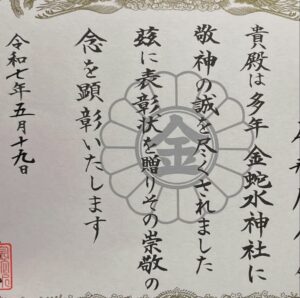 貴殿は多年金蛇水神社に
敬神の誠を尽くされました
茲に表彰状を贈りその崇敬の
念を顕彰いたします
令和七年五月十九日
金